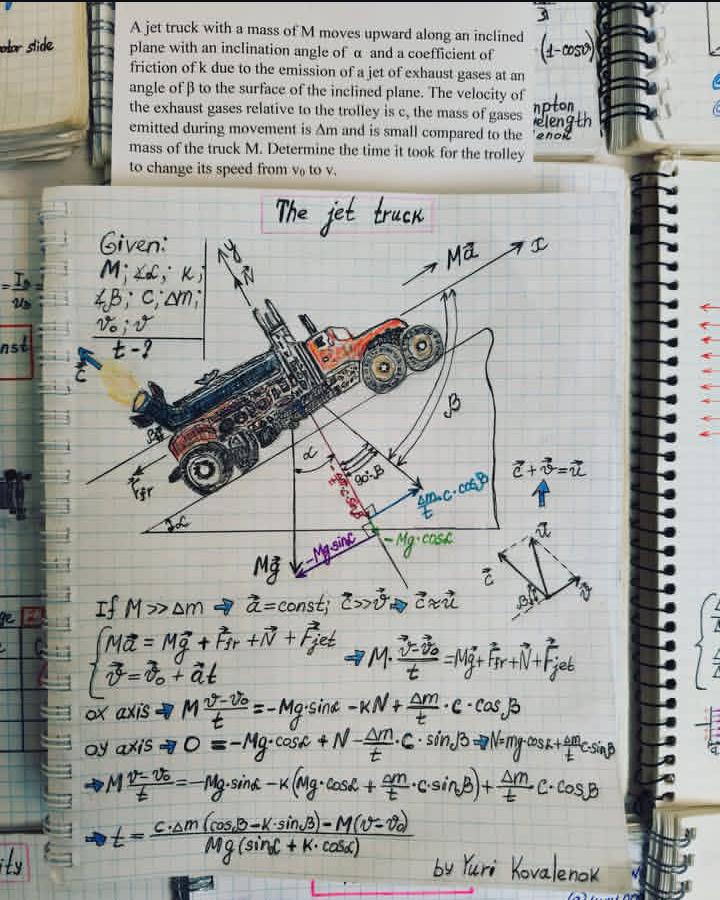 A jet truck with a mass of M moves upward along an inclined
plane with an inclination angle of α and a coefficient of
friction of k due to the emission of a jet of exhaust gases at an
angle of β to the surface of the inclined plane. The velocity of
the exhaust gases relative to the trolley is c, the mass of gases
emitted during movement is Δm and is small compared to the
mass of the truck M. Determine the time it took for the trolley
to change its speed from v₀ to v.
slide
(1-cosθ)
mpton
elength
enok
The jet truck
Given:
M; ∡α; k;
∡β; C; Δm;
v₀; v
t-?
y
N⃗
Ma⃗
x
c⃗
β
F⃗fr
α
β
90°-β
Δm/t·c·sinβ
Δm/t·c·cosβ
∡α
Mg⃗
-Mg·sinα
-Mg·cosα
c⃗+v⃗=u⃗
u⃗
c⃗
β
v⃗
If M>>Δm ⇒ a⃗=const; c⃗>>v⃗ ⇒ c⃗≈u⃗
{Ma⃗ = Mg⃗ + F⃗fr + N⃗ + F⃗jet
{v⃗ = v⃗₀ + a⃗t
⇒ M·(v⃗-v⃗₀)/t = Mg⃗ + F⃗fr + N⃗ + F⃗jet
ox axis ⇒ M (v-v₀)/t = -Mg·sinα -kN + Δm/t · c · cosβ
oy axis ⇒ 0 = -Mg·cosα + N - Δm/t · c · sinβ ⇒ N=mg·cosα+Δm/t c·sinβ
⇒ M (v-v₀)/t = -Mg·sinα -k(Mg·cosα + Δm/t ·c·sinβ) + Δm/t c·cosβ
⇒ t = (c·Δm (cosβ-k·sinβ) - M(v-v₀))/(Mg (sinα + k·cosα))
by Yuri Kovalenok
nst
ity